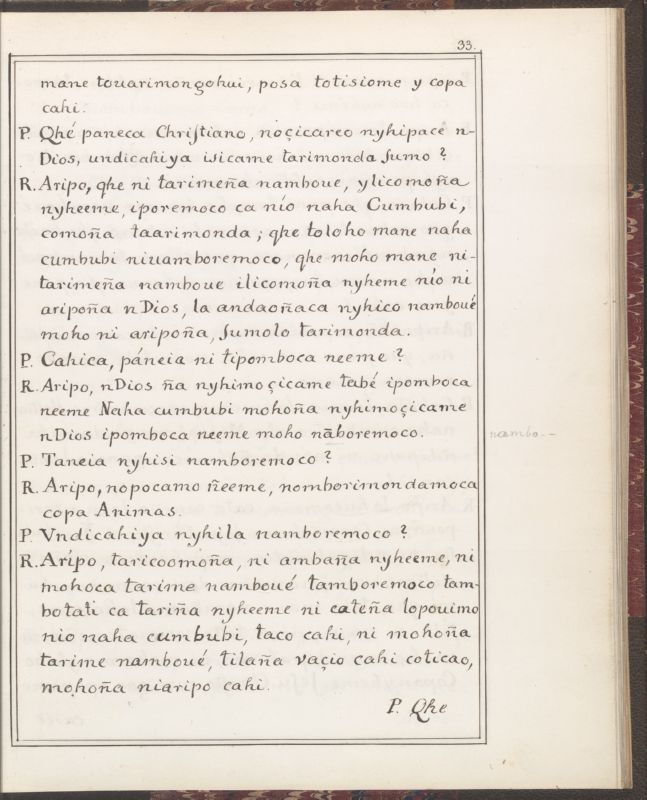 33.
mane touarimongohui, posa totisiome y copa
cahi.
P. Qhé paneca Chriſtiano, noçicareo nyhipace n-
Dios, undicahiya isicame tarimonda ſumo?
R. Aripo, qhe ni tarimeña namboue, ylicomoña
nyheeme, iporemoco ca nío naha Cumbubi,
comoña taarimonda; qhe toloho mane naha
cumbubi niuamboremoco, qhe moho mane ni-
tarimeña namboue ilicomoña nyheme nío ni
aripoña nDios, la andaoñaca nyhico namboué
moho ni aripoña, ſumolo tarimonda.
P. Cahica, páneia ni tipomboca neeme?
R. Aripo, nDios ña nyhimoçicame tabé ipomboca
neeme Naha cumbubi mohoña nyhimoçicame
nDios ipomboca neeme moho nāboremoco.
nambo--
P. Taneia nyhisi namboremoco?
R. Aripo, nopocamo ñeeme, nomborimondamoca
copa Animas.
P. Vndicahiya nyhila namboremoco?
R. Arípo, taricoomoña, ni ambaña nyheeme, ni
mohoca tarime namboué tamboremoco tam-
botati ca tariña nyheeme ni cateña lopouimo
nio naha cumbubi, taco cahi, ni mohoña
tarime namboué, tilaña vaçio cahi coticao,
mohoña niaripo cahi.
P. Qhe